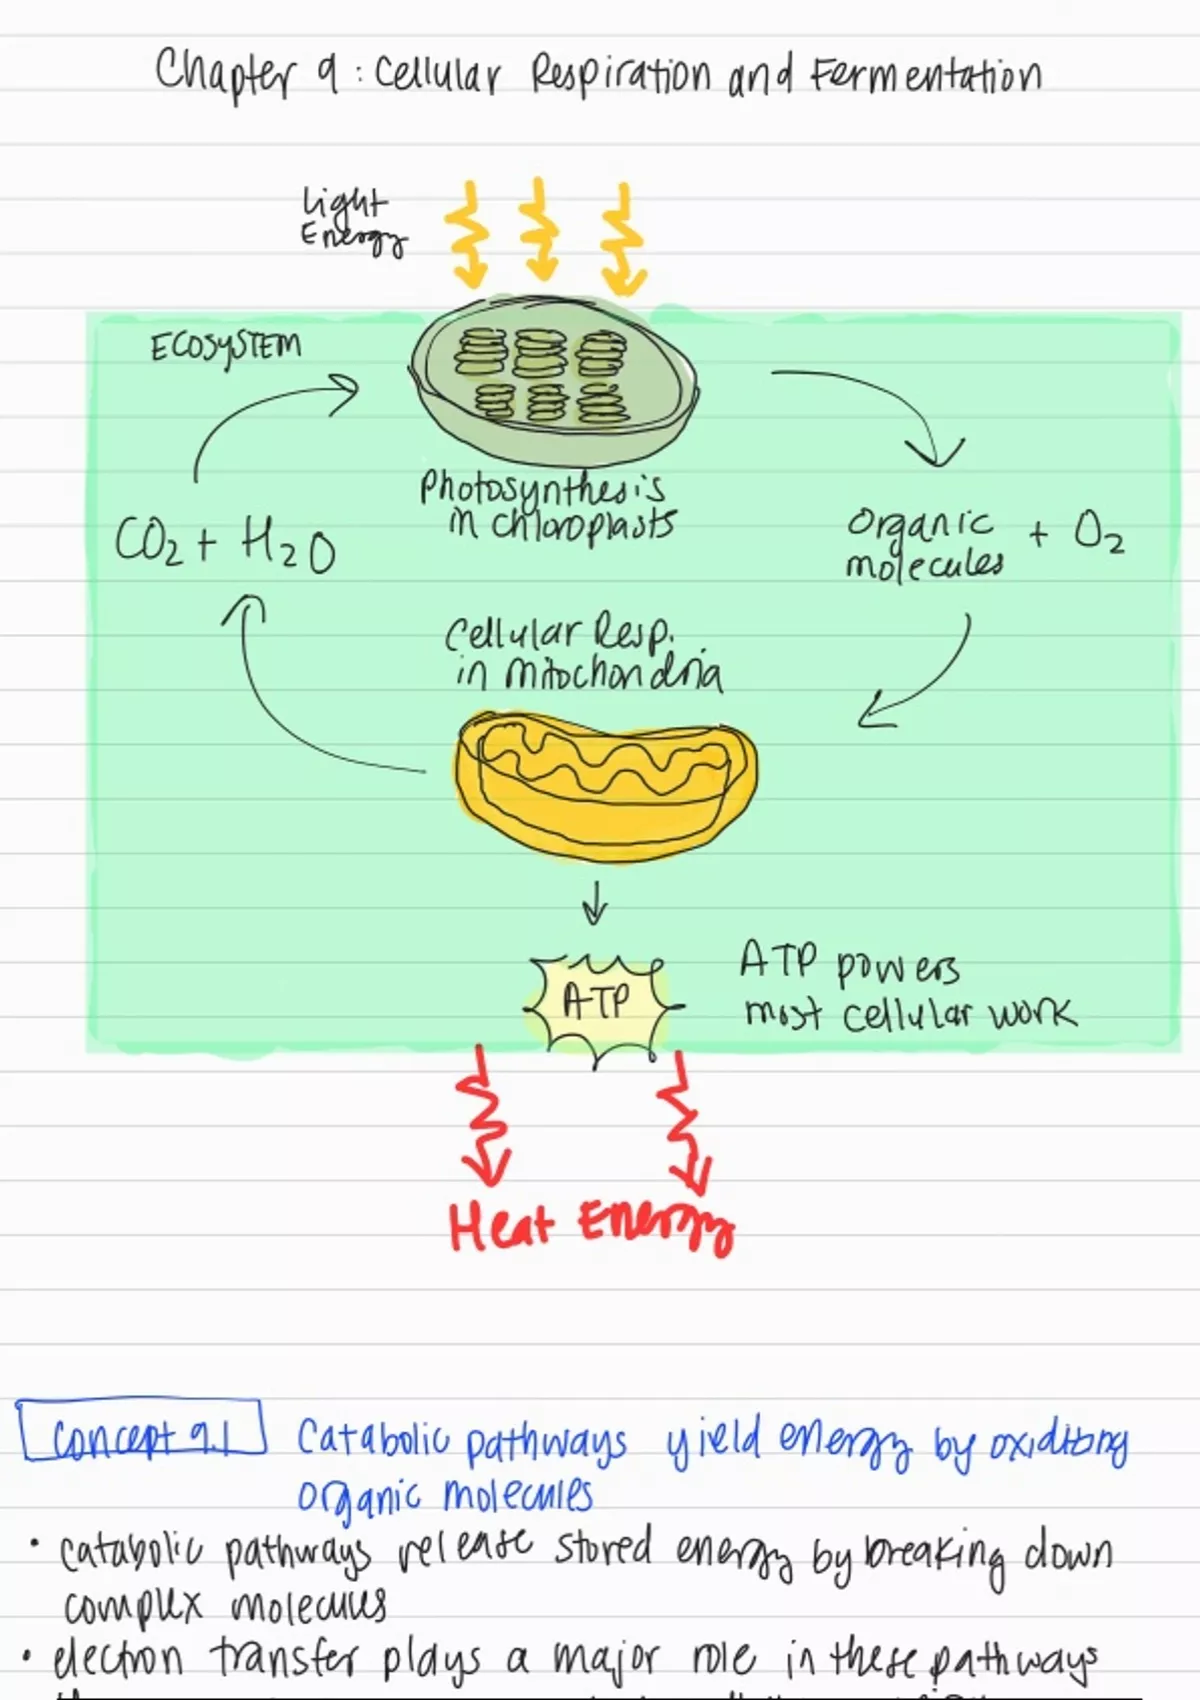 Chapter 9: Cellular Respiration and Fermentation
Light
Energy
ECOSYSTEM
Photosynthesis
in chloroplasts
CO2 + H2O
Organic + O2
molecules
Cellular Resp.
in mitochondria
ATP
ATP powers
most cellular work
Heat Energy
Concept 9.1 Catabolic pathways yield energy by
organic molecules
• catabolic pathways release stored energy by breaking down
complex molecules
• electron transfer plays a major role in these pathways